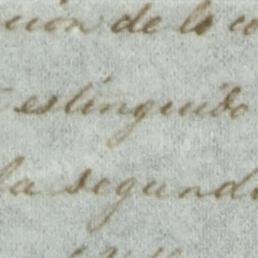 ción de la co
estinguido
la segunda